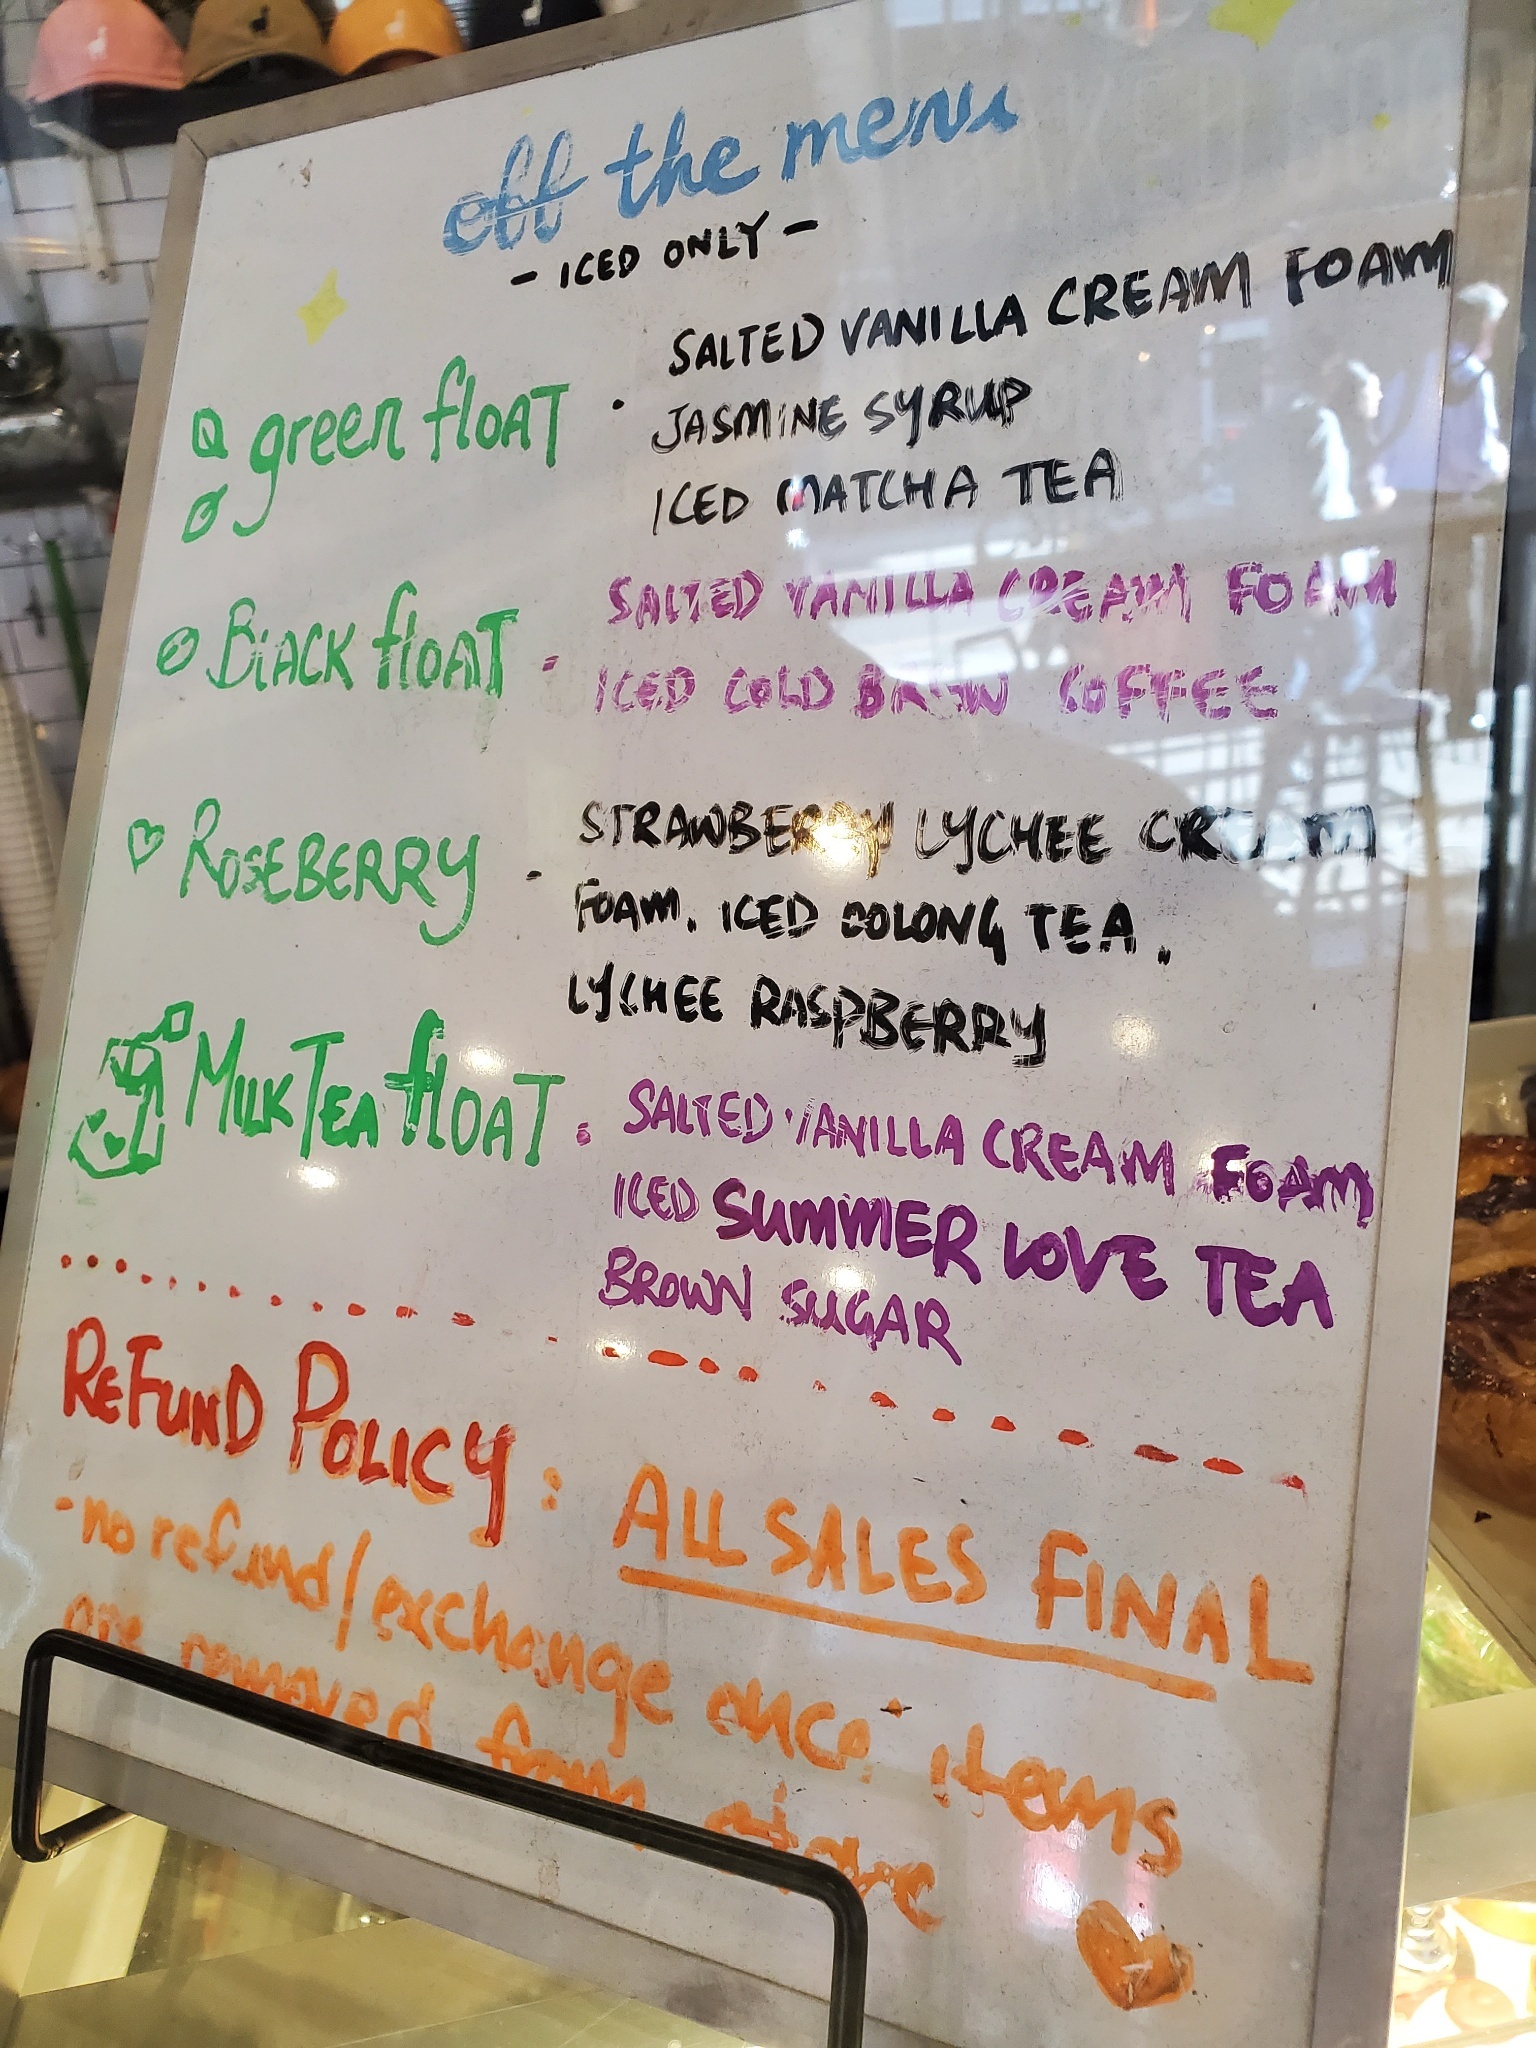 off the menu
- ICED ONLY -
green float . SALTED VANILLA CREAM FOAM
JASMINE SYRUP
ICED MATCHA TEA
BlACK float - SALTED VANILLA CREAM FOAM
ICED COLD BREW COFFEE
ROSEBERRY - STRAWBERRY LYCHEE CREAM
FOAM. ICED OOLONG TEA.
LYCHEE RASPBERRY
MILK TEA float . SALTED VANILLA CREAM FOAM
ICED SUMMER LOVE TEA
BROWN SUGAR
REFUND POLICY : ALL SALES FINAL
- no refund/exchange once items
are removed from store